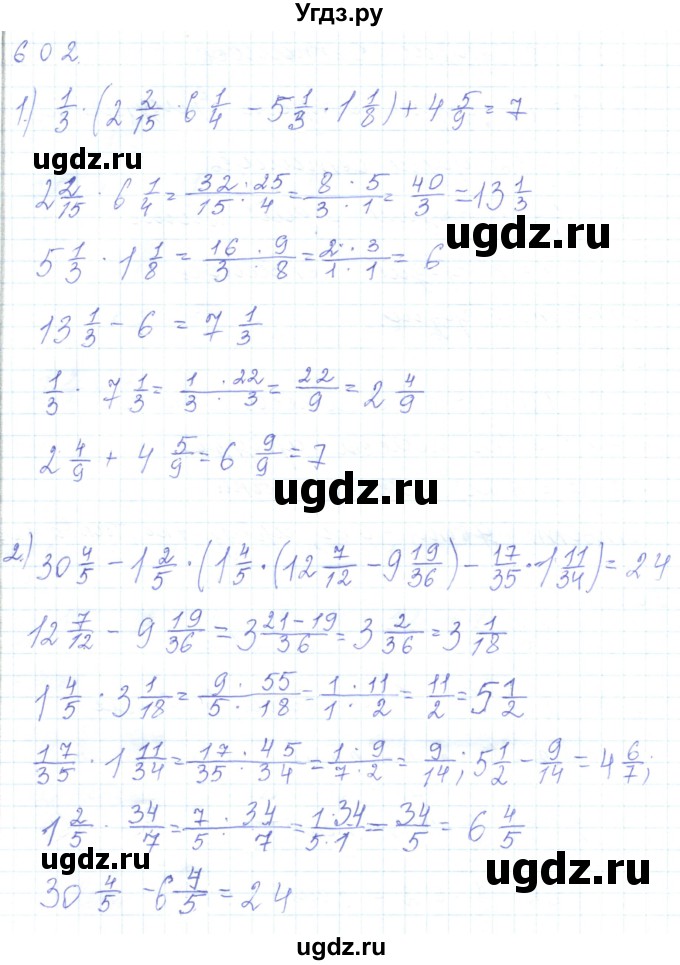 Угдз.ру
602
1) 1/3 · (2 2/15 · 6 1/4 - 5 1/3 · 1 1/8) + 4 5/9 = 7
ugdz.ru
2 2/15 · 6 1/4 = (32 · 25)/(15 · 4) = (8 · 5)/(3 · 1) = 40/3 = 13 1/3
ugdz.ru
5 1/3 · 1 1/8 = (16 · 9)/(3 · 8) = (2 · 3)/(1 · 1) = 6
13 1/3 - 6 = 7 1/3
1/3 · 7 1/3 = (1 · 22)/(3 · 3) = 22/9 = 2 4/9
2 4/9 + 4 5/9 = 6 9/9 = 7
ugdz.ru
2) 30 4/5 - 1 2/5 · (1 4/5 · (12 7/12 - 9 19/36) - 17/35 · 1 11/34) = 24
ugdz.ru
ugdz.ru
12 7/12 - 9 19/36 = 3 (21-19)/36 = 3 2/36 = 3 1/18
1 4/5 · 3 1/18 = (9 · 55)/(5 · 18) = (1 · 11)/(1 · 2) = 11/2 = 5 1/2
17/35 · 1 11/34 = (17 · 45)/(35 · 34) = (1 · 9)/(7 · 2) = 9/14; 5 1/2 - 9/14 = 4 6/7;
1 2/5 · 34/7 = (7 · 34)/(5 · 7) = (1·34)/(5·1) = 34/5 = 6 4/5
ugdz.ru
ugdz.ru
30 4/5 - 6 4/5 = 24
ugdz.ru